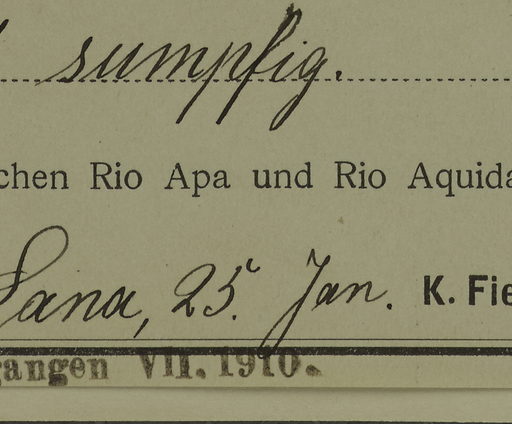 sumpfig.
chen Rio Apa und Rio Aquida
Sana, 25. Jan. K. Fie
gangen VII. 1910.